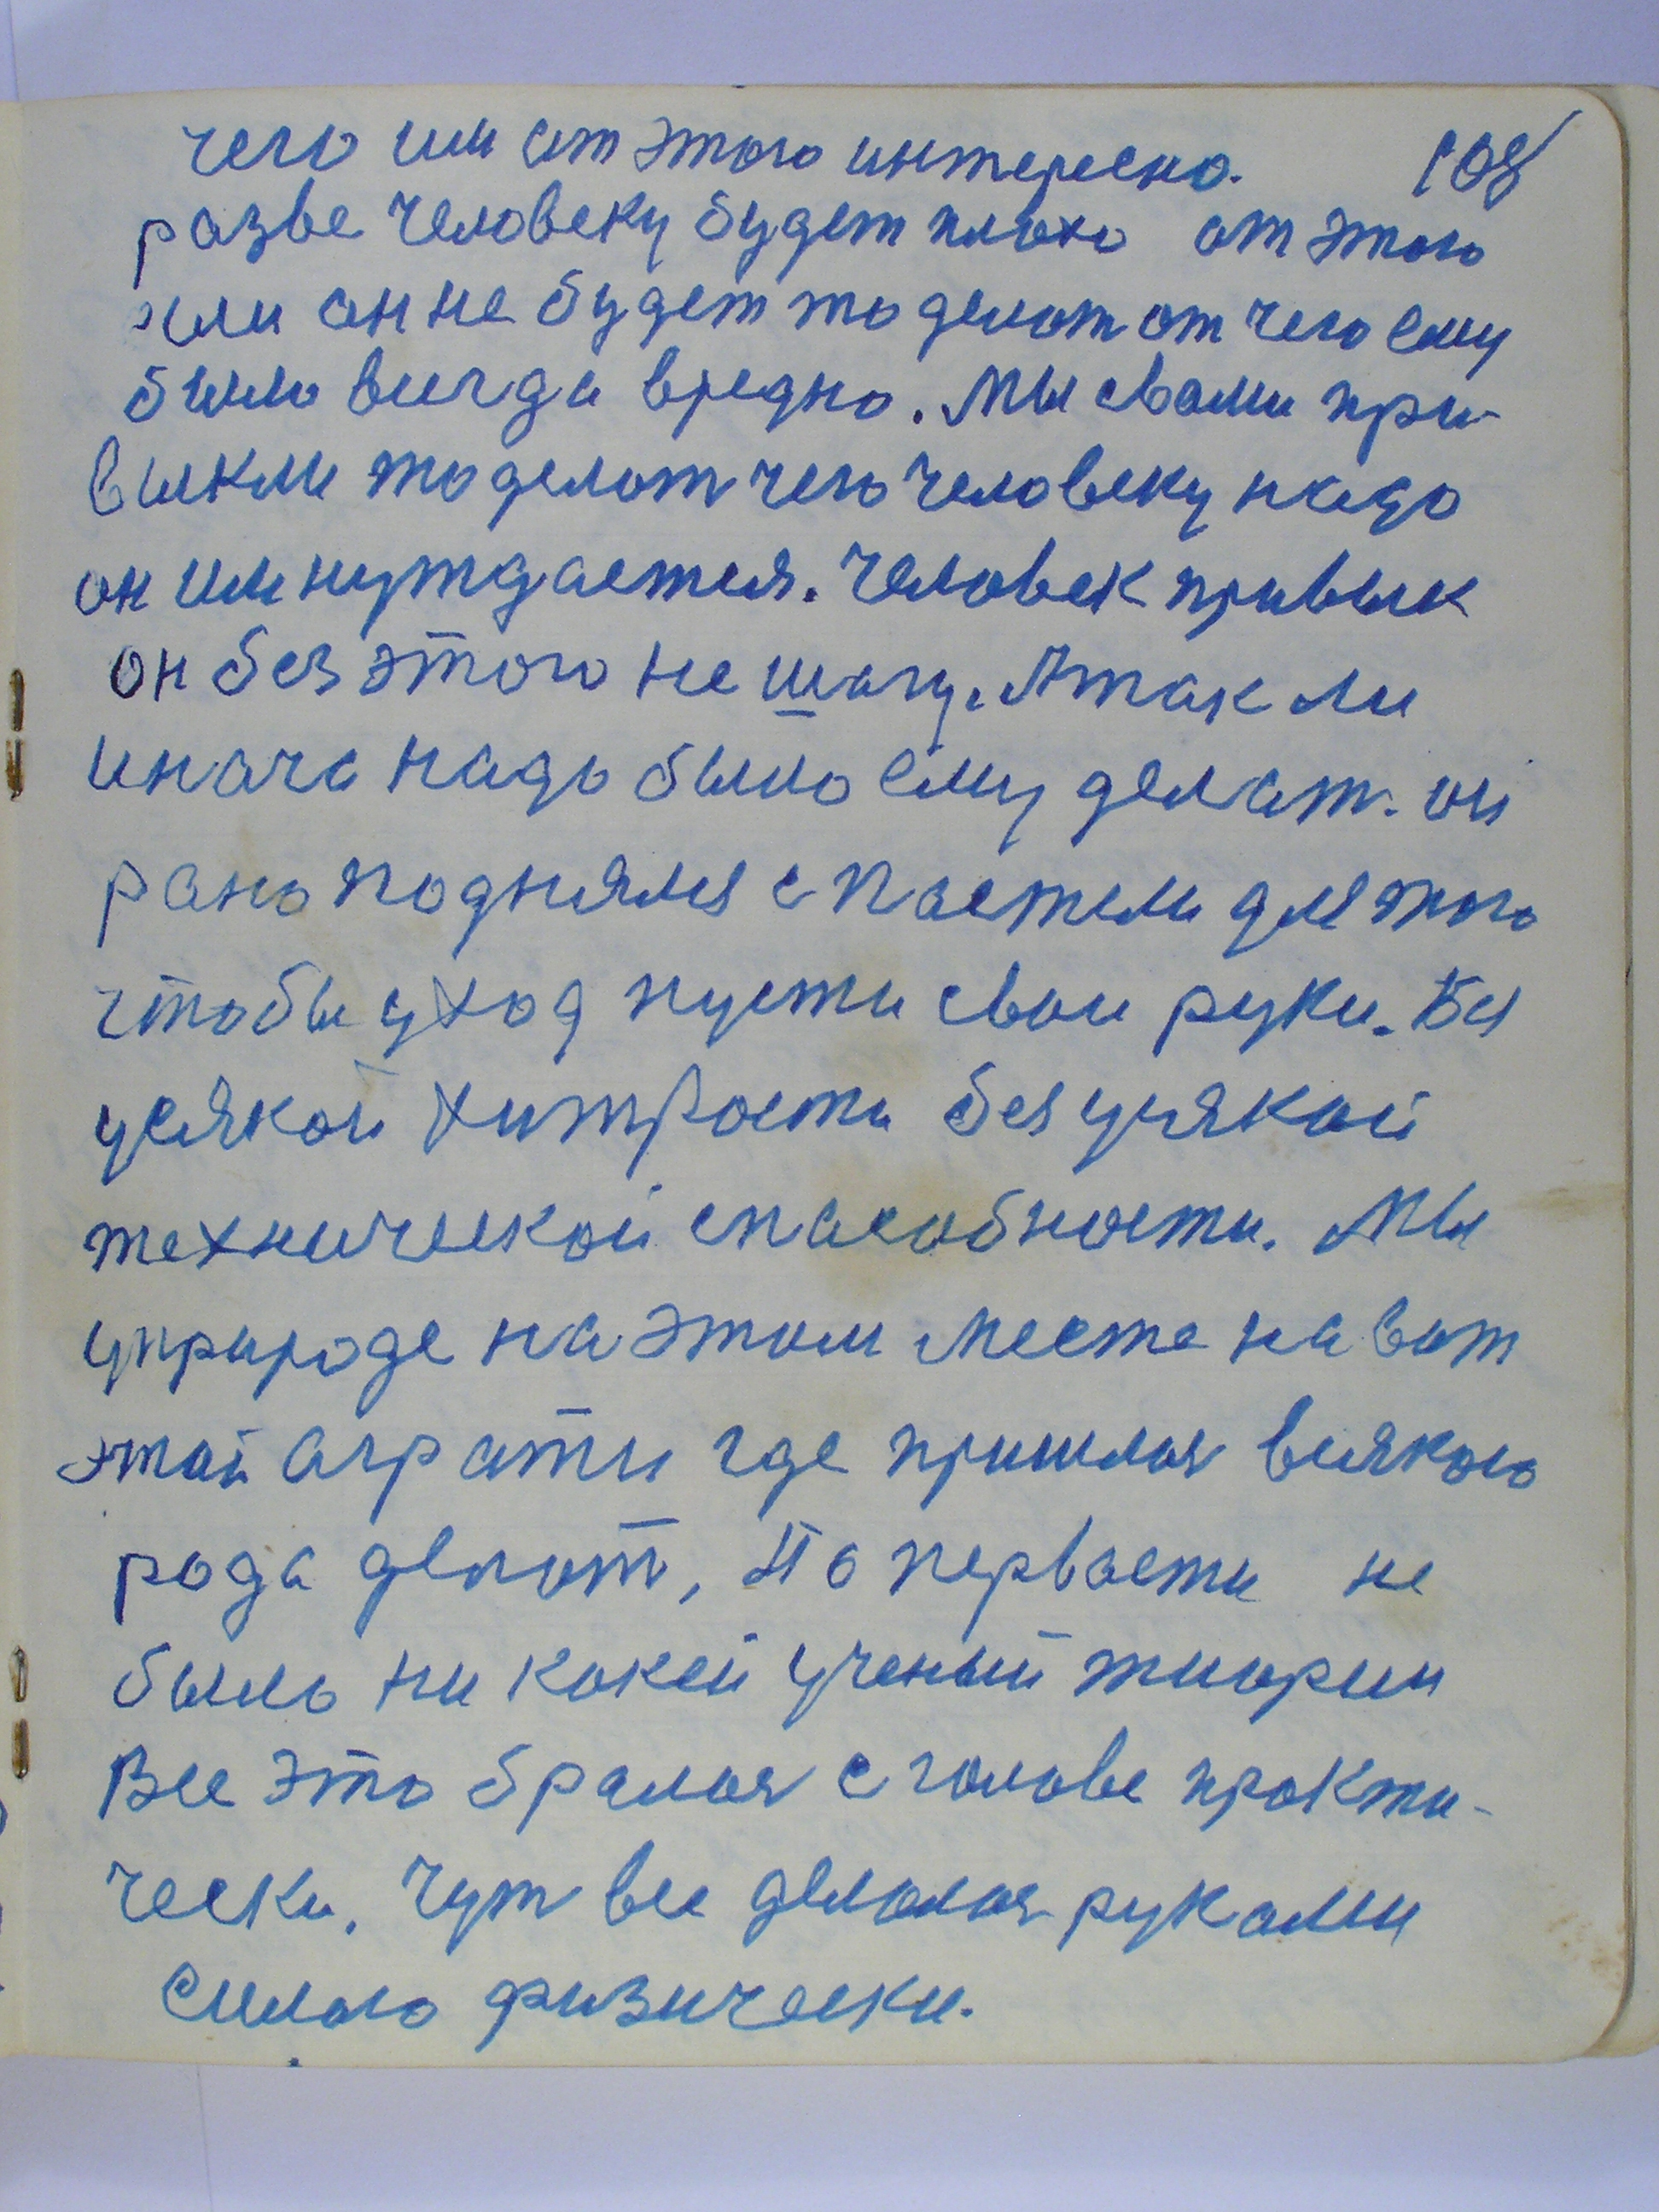 чего им от этого интересно. 108
разве человеку будет плохо от этого
или он не будет то делат от чего ему
было всегда вредно. Мы свами при-
выкли то делат чего человеку надо
он им нуждается. Человек привык
он без этого не шагу. А так ли
иначе надо было ему делат. он
рано поднялся с пастели для того
чтобы уход пусти свои руки. Без
усякой хитрости без усякой
технической спасобности. Мы
уприроде на этом месте на вот
этай
где пришлося всякого
рода делат, По первасти не
было ни какей ученый тиории
Все это бралося с голове практи-
чески. Чут все делалося руками
силою физически.